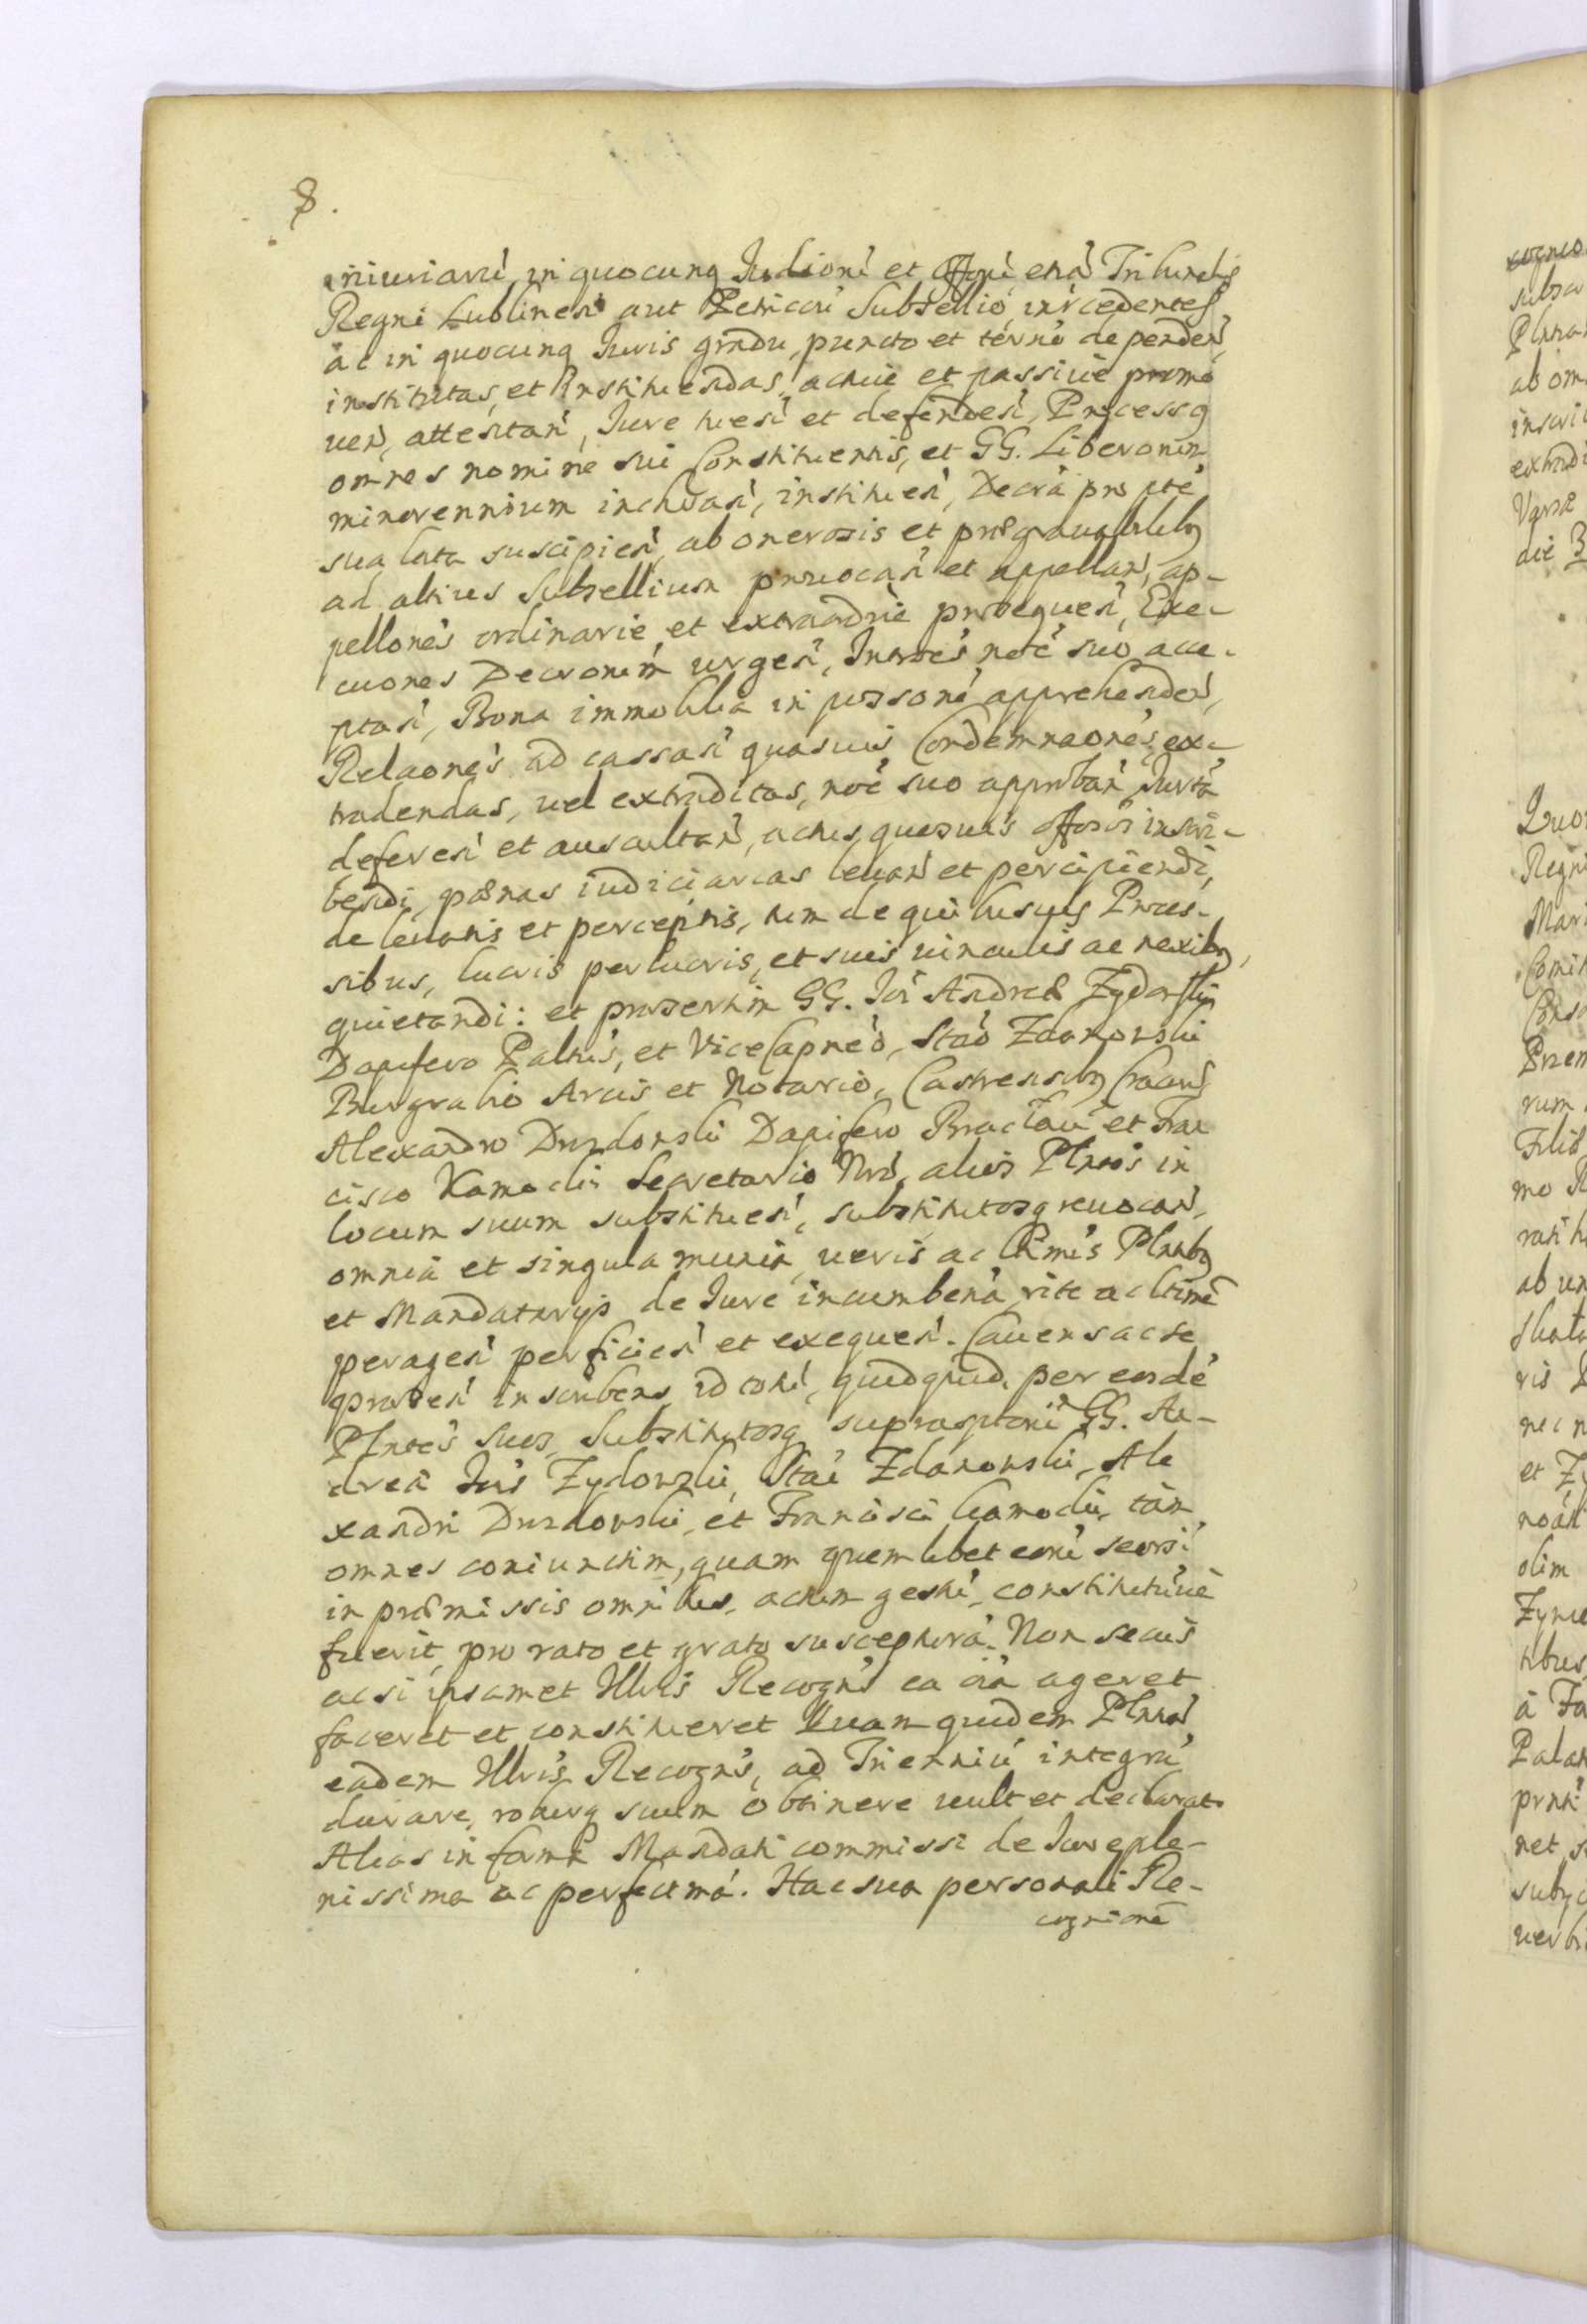 8.
iniuriarũ, in quocunq Iudicioñi et Offoni, etiã Tribunalis
Regni Lublinen̄ aut Petricouĩ Subsellio, intercedentes
ac in quocunq Iuris gradu, puncto et termĩo dependeñ,
institutas, et Instituendas, actiue et passiue promo
ueñ, attentañ, Iure tueñ et defendeñ, Processg
omnes nomine sui Constituentis, et GG. Liberorum
minorennium inchoañ, institueñ, Decrã pro pte
sua lata suscipieñ, ab onerosis et prægrauatibus
ad altius Subsellium prouocañ et appellañ, ap-
pellones ordinarie et extraordrie prosequeñ, Exe-
cuones Decrorum urgeñ, Introes noe suo acce-
ptañ, Bona immobilia in possone apprehendeñ,
Relaones ad cassañ quasuis Condemnaones, ex-
tradendas, uel extraditas, noe suo approbañ Iurta
defereñ et auscultañ, actus quosuis Offosos inscri-
bendi, pœnas iudiciarias leuañ et percipiendi,
de leuatis et perceptis, tum de quibusuis Proces-
sibus, lucris perlucris, et suis vinculis ac nexibg,
quietandi: et præsertim GG. Ioi Andreæ Zydowski
Dapifero Paltus, et Vice Capneo, Stao Zdanowski
Burgrabio Arcis et Notario, Castrensibg Craccs
Alexandro Drozdowski Dapifero Braclau et Fran
cisco Kamocki Secretario Nro, alios Plnos in
locum suum substitueñ, substitutosq reuocañ,
omnia et singula munia, ueris ac Ltimis Plntibg
et Mandatarys de Iure incumbena, rite ac ltime
perageñ perficieñ et exequeñ. Cauens ac se
præseñ inscribens, id toti, quidquid per eosde
Plntes suos, Substitutosq supraspcoñ GG. An-
dreã Iois Zydowski, Stai Zdanowski, Ale
xandri Drozdowski, et Francisci Kamocki, tam
omnes coniunctim, quam quemlibet eorũ seorsi
in præmissis omnibus, actum gestũ, constitutũue
fuerit, pro rato et grato suscepturã. Non secus
ac si ipsamet Illris Recogns ea oia ageret
faceret et constitueret Quam quidem Plntae
eadem Illris Recogns, ad Trienniũ integrũ
durare, roburq suum obtinere uult et declarat.
Alias in forma Mandati commissi de Iure ple-
nissima ac perfectma. Hac sua personali Re-
cognione